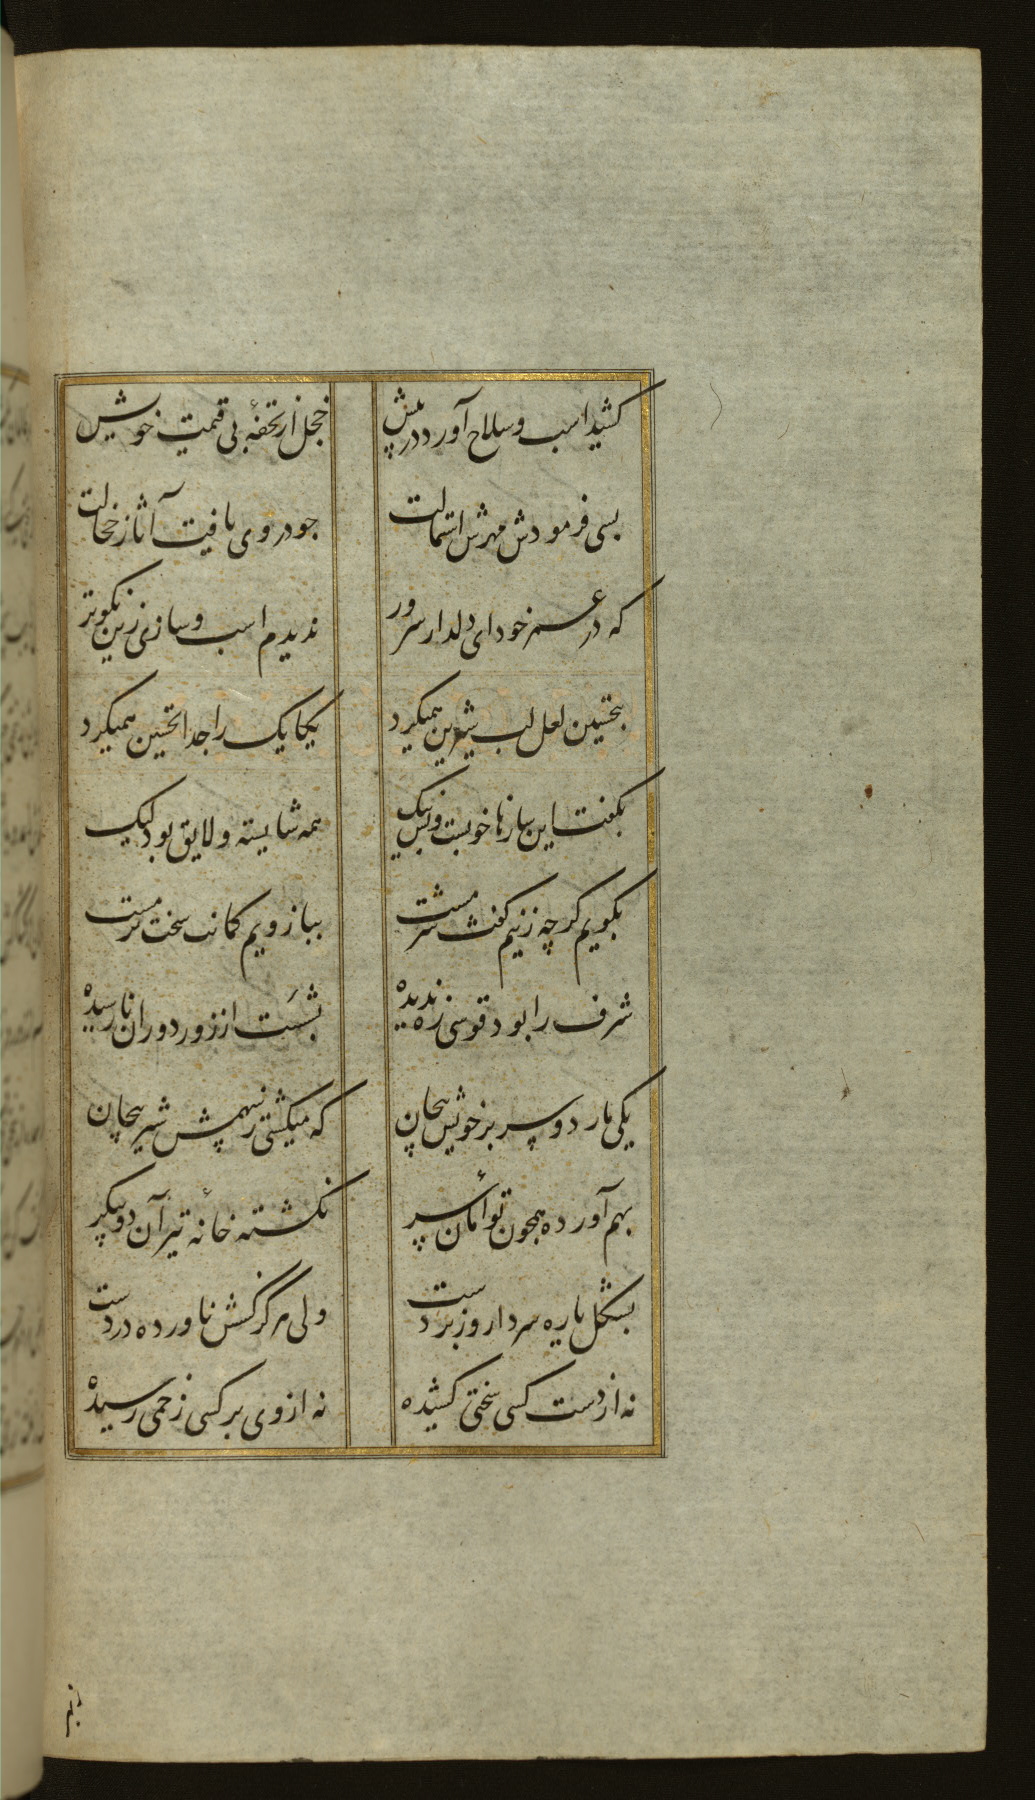 کشید اسب و سلاح آورد در پیش
خجل از تحفهٔ بی قیمت خویش
بسی فرمودش مهرش استمالت
جو در وی یافت آثار خجالت
که در عمر خود ای دلدار سرور
ندیدم اسب و سازی زین نکوتر
بتحسین لعل لب شیرین همیکرد
یکایک را جدا تحسین همیکرد
بگفت این سازها خوبست و بس نیک
همه شایسته و لایق بود لیک
بگویم کر چه زنیم کفت
ببازویم کمانت سخت سست
شرف را بود قوسی زه ندیده
بشست از زور دوران نارسیده
یکی مار دو سر بر خویش پیچان
که میکشتی ز سهمش شیر پیچان
بهم آورده همچون توأمان سر
نکشته خانهٔ تیر آن دو پیکر
بشکل یاره سردار و زبردست
ولی هرگز کسش ناورده در دست
نه از دست کسی سختی کشیده
نه از وی بر کسی زخمی رسیده